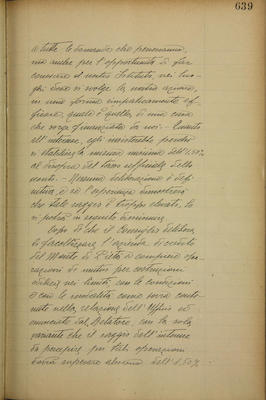 639
a tutte le domande che perverranno,
ma anche per l'opportunità di far
conoscere il nostro Istituto nei luo-
ghi dove si svolge la nostra azione,
in una forma simpaticamente ef-
ficace, quale è quella di una casa
che sorga finanziata da noi. Quanto
all'interesse, egli riterrebbe potersi
stabilire la misura massima dell'1.50%
al disopra del tasso ufficiale dello
sconto. Nessuna deliberazione è defi-
nitiva, e se l'esperienza dimostrerà
che tale saggio è troppo elevato, lo
si potrà in seguito diminuire.
Dopo di che il Consiglio delibera
di facoltizzare l'azienda di credito
del Monte di Pietà a compiere ope-
razioni di mutuo per costruzioni
edilizie nei limiti, con le condizioni
e con le modalità come sopra conte-
nute nella relazione dell'Ufficio ed
enunciate dal Relatore, con la sola
variante che il saggio dell'interesse
da percepire per tali operazioni
dovrà superare almeno dell'1.50%